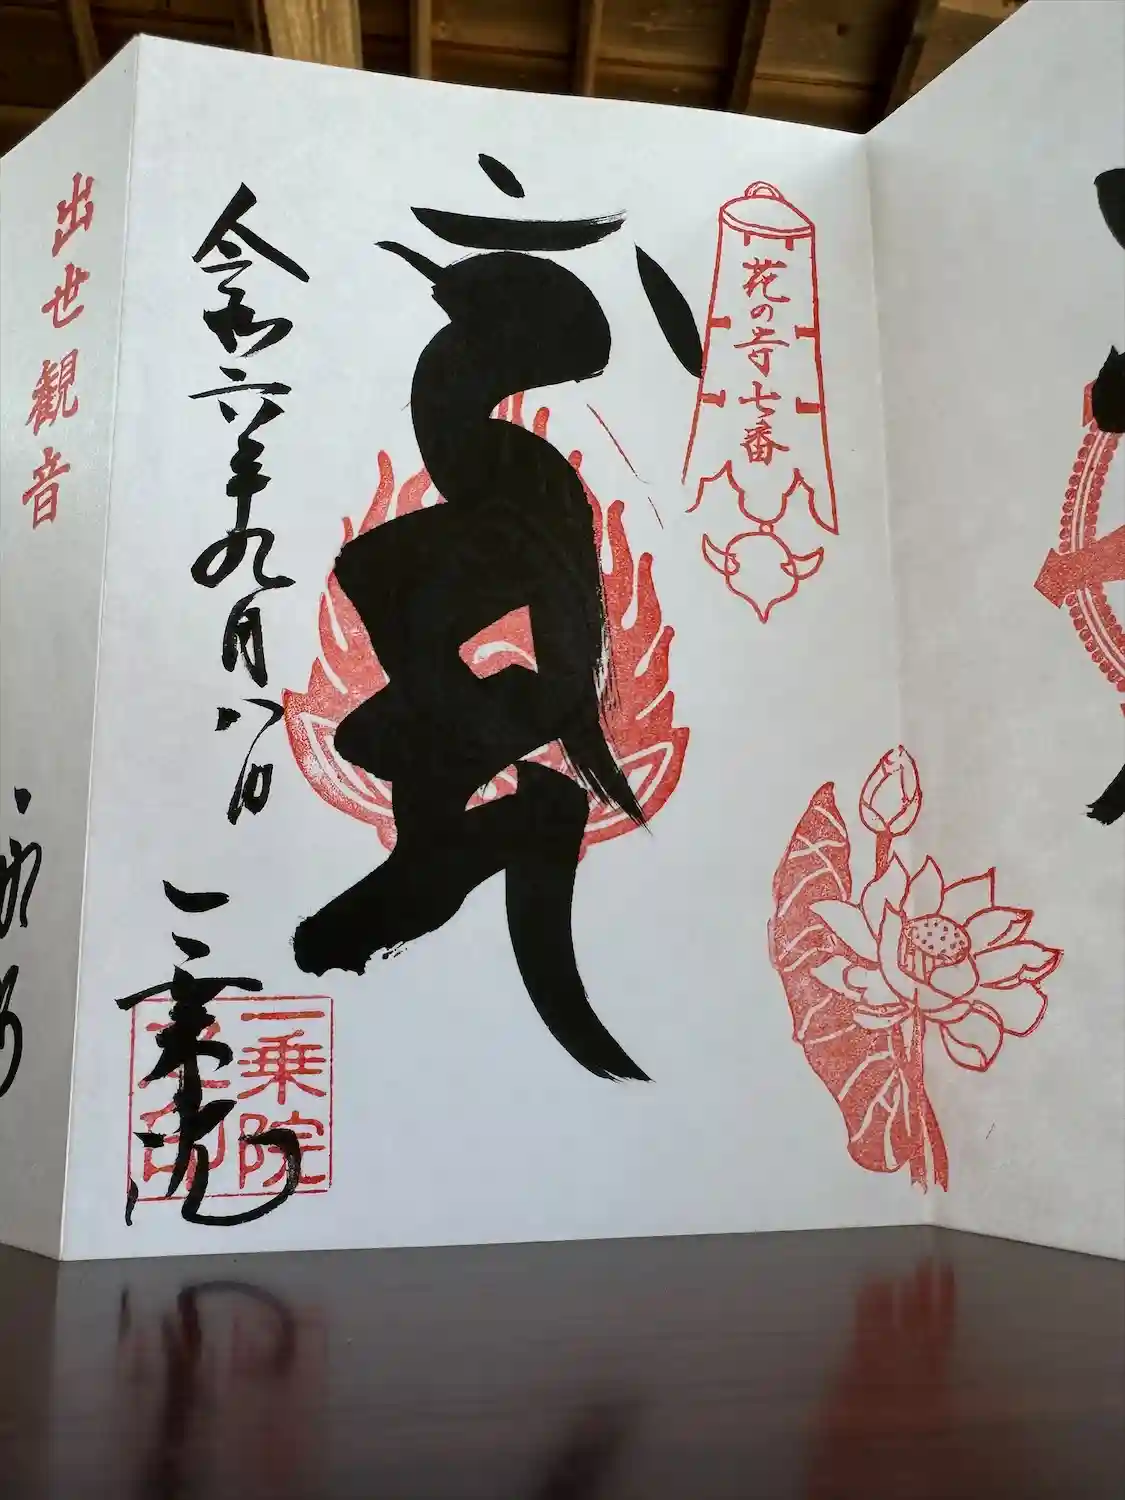 花の寺七番
令和六年九月八日
一乗院
一乗院
之印
出世観音